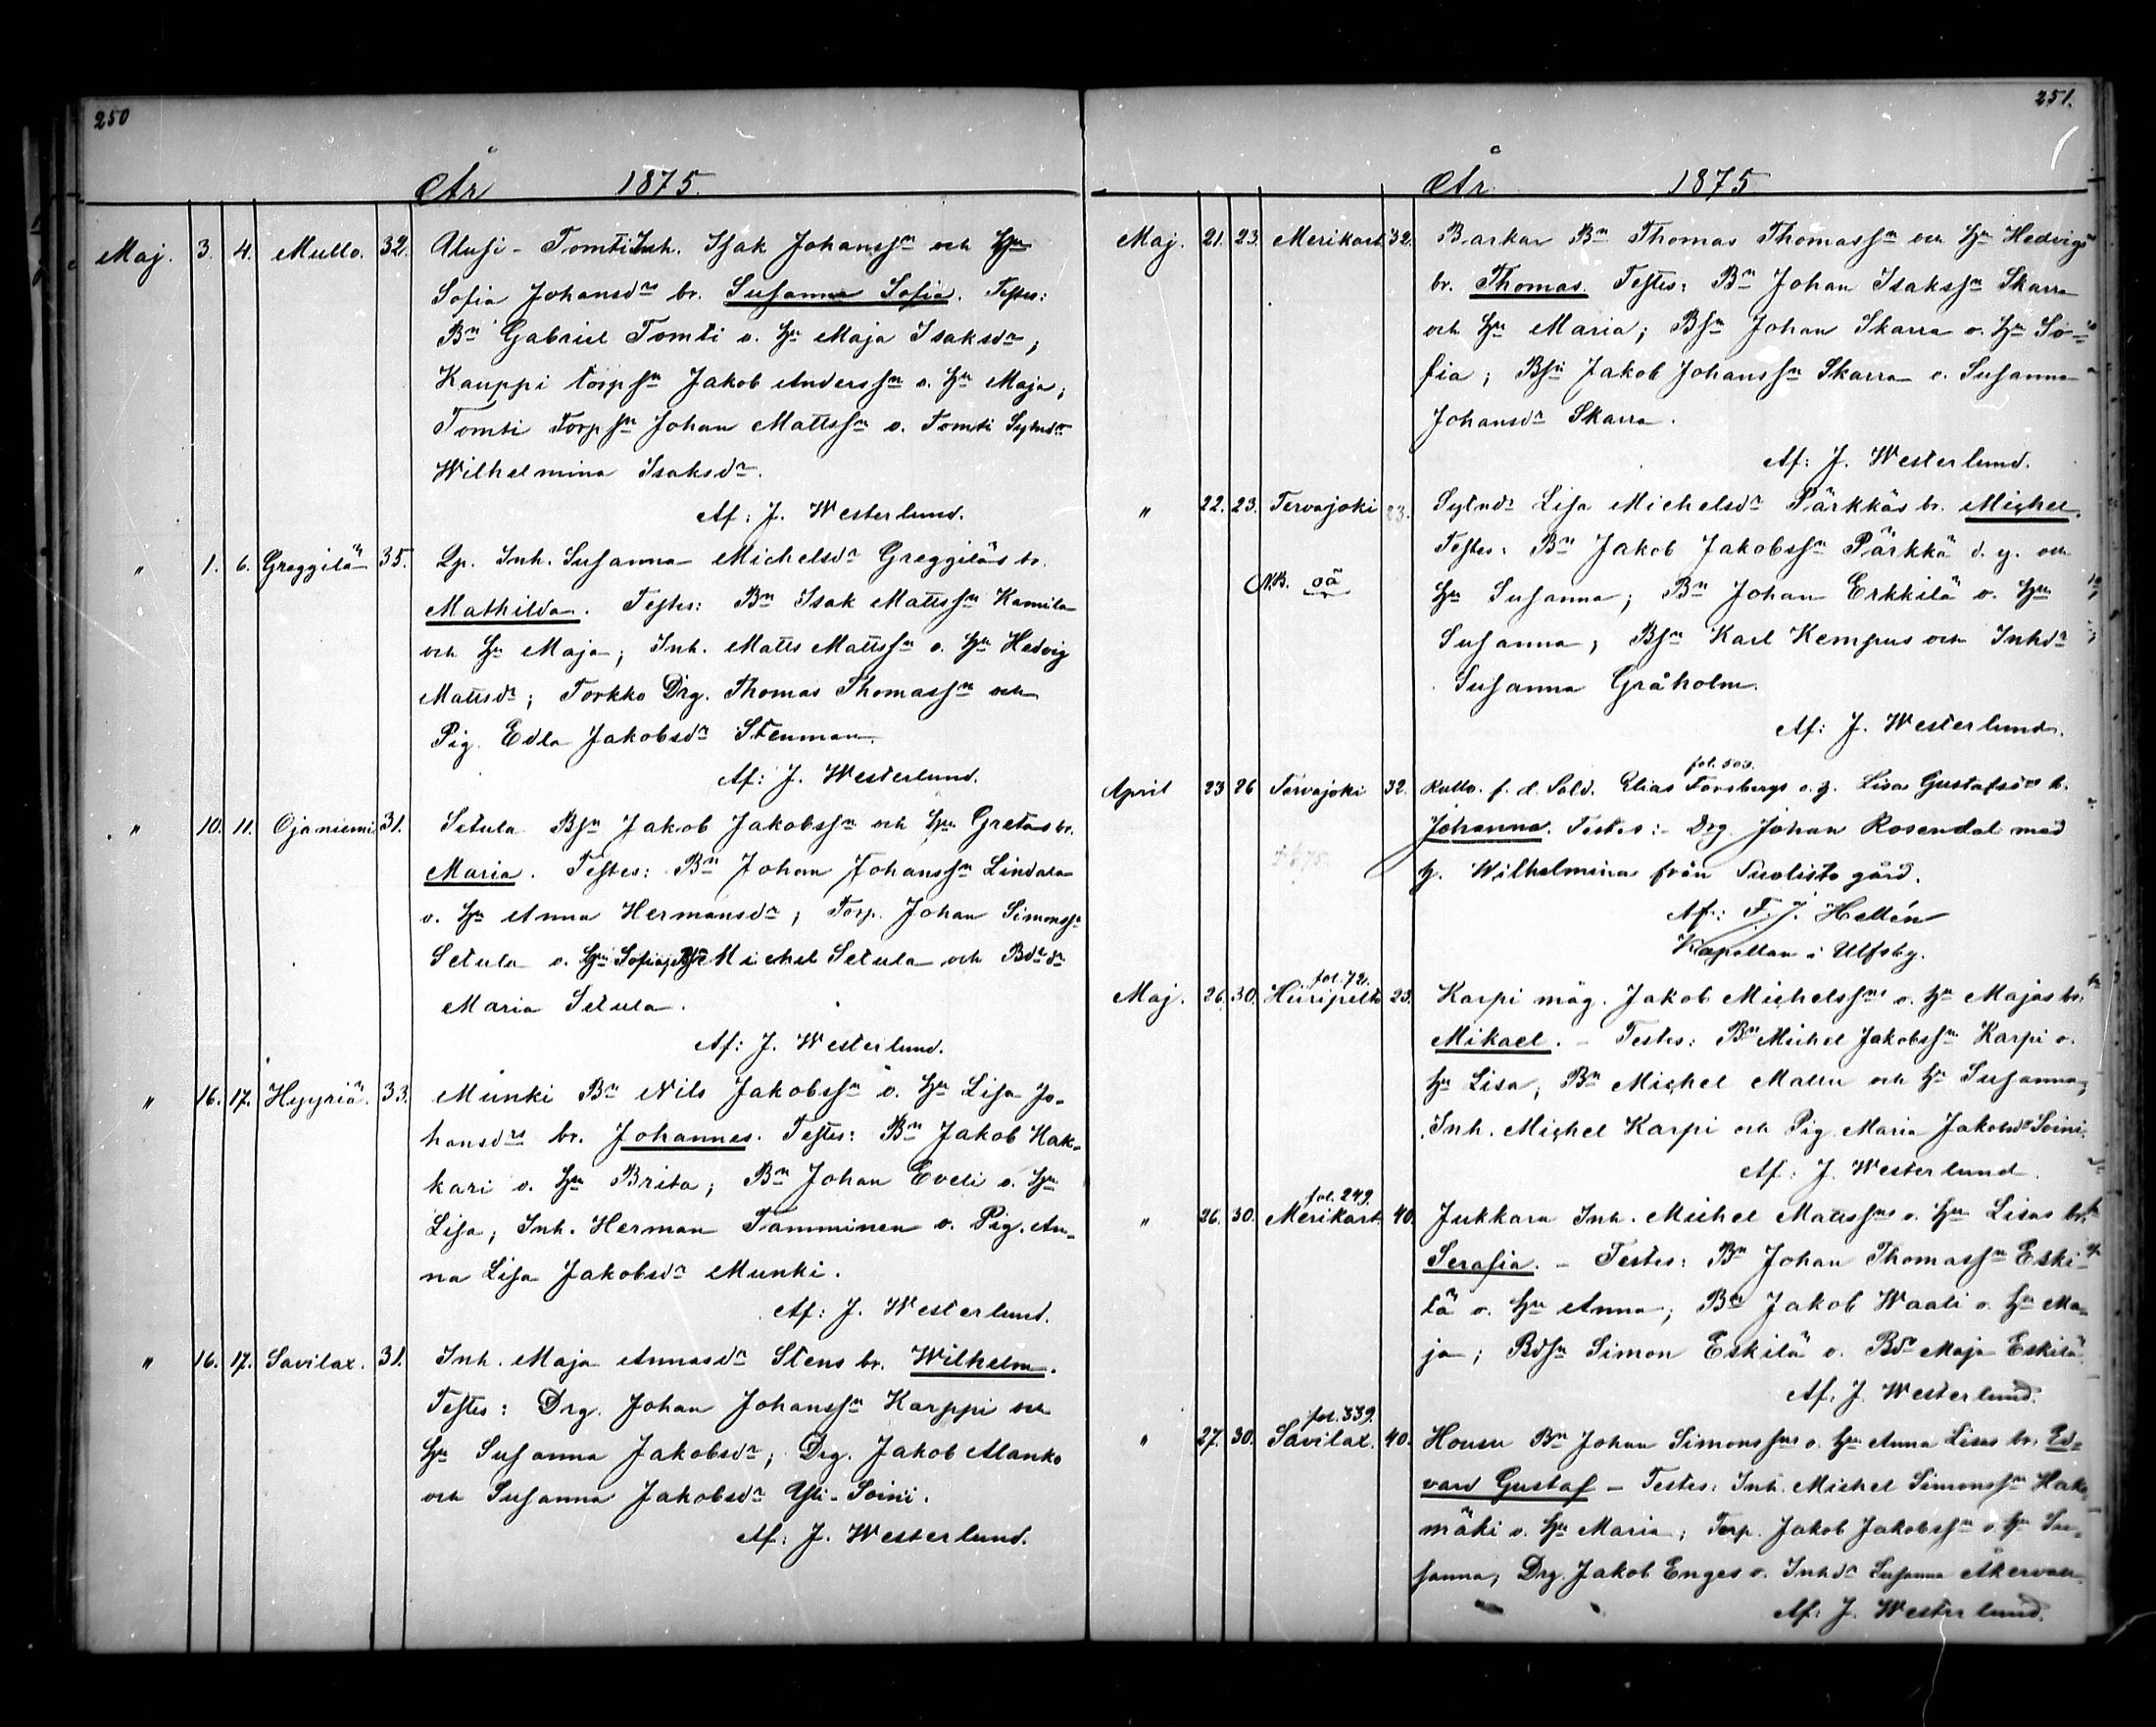 250
År 1875.
Maj. 3. 4. Mullo. 32. Alusi-Tomti Inh. Isak Johanssn och Hu
Sofia Johansdrs br. Susanna Sofia. Testes:
Bn Gabriel Tomti o. Hu Maja Isaksdr;
Kauppi torpsn Jakob Anderssn o. Hu Maja;
Tomti Torpsn Johan Mattssn o. Tomti Sytndr
Wilhelmina Isaksdr.
Af: J. Westerlund.
" 1. 6. Greggilä 35. Lp. Inh. Susanna Michelsdr Greggiläs br.
Mathilda. Testes: Bn Isak Mattssn Kamila
och Hu Maja; Inh. Matts Mattssn o. Hu Hedvig
Mattsdr; Torkko Drg. Thomas Thomassn och
Pig. Edla Jakobsdr Stenman.
Af: J. Westerlund.
" 10. 11. Ojaniemi 31. Setula Bsn Jakob Jakobssn och Hu Gretas br.
Maria. Testes: Bn Johan Johanssn Lindala
o. Hu Anna Hermansdr; Torp. Johan Simonssn
Setula o. Hu Sofia; Bsn Michel Setula och Bdr
Maria Setula.
Af: J. Westerlund.
" 16. 17. Hyyriä. 33. Munki Bn Nils Jakobssn o. Hu Lisa Jo-
hansdrs br. Johannes. Testes: Bn Jakob Hak-
kari o. Hu Brita; Bn Johan Eveli o. Hu
Lisa; Inh. Herman Tamminen o. Pig. An-
na Lisa Jakobsdr Munki.
Af: J. Westerlund.
" 16. 17. Savilax. 31. Inh. Maja Annasdr Stens br. Wilhelm.
Testes: Drg. Johan Johanssn Karppi och
Hu Susanna Jakobsdr; Drg. Jakob Alanko
och Susanna Jakobsdr Yli-Soini.
Af: J. Westerlund.
251.
År 1875
Maj. 21. 23. Merikart 32. Barkar Bn Thomas Thomassn och Hu Hedvigs
br. Thomas. Testes: Bn Johan Isakssn Skarra
och Hu Maria; Bsn Johan Skarra o. Hu So-
fia; Bsn Jakob Johanssn Skarra o. Susanna
Johansdr Skarra.
Af: J. Westerlund.
" 22. 23. Tervajoki 23. Sytndr Lisa Michelsdr Pärkkäs br. Michel.
Testes: Bn Jakob Jakobssn Pärkkä d. y. och
NB. oä Hu Susanna; Bn Johan Erkkilä o. Hu
Susanna; Bsn Karl Kempus och Inhdr
Susanna Gråholm.
Af: J. Westerlund.
fol. 503.
April 23 26 Tervajoki 32. Kullo. f. d. Sold. Elias Forsbergs o. h. Lisa Gustafsdrs b.
Johanna. Testes: Drg. Johan Rosendal med
h. Wilhelmina från Suolisto gård.
Af: F. J. Hellén
Kapellan i Ulfsby.
fol. 72.
Maj. 26. 30. Hiiripelto 23. Karpi måg. Jakob Michelssns o. Hu Majas br.
Mikael. - Testes: Bn Michel Jakobssn Karpi o.
Hu Lisa; Bn Michel Mattu och Hu Susanna;
Inh. Michel Karpi och Pig. Maria Jakobsdr Soini.
Af: J. Westerlund.
fol. 249.
" 26. 30. Merikart. 40. Jukkara Inh. Michel Mattssns o. Hu Lisas br.
Serafia. - Testes: Bn Johan Thomassn Eski-
lä o. Hu Anna; Bn Jakob Waali o. Hu Ma-
ja; Bdsn Simon Eskilä o. Bdr Maja Eskilä.
Af: J. Westerlund.
fol. 339.
" 27. 30. Savilax. 40. Housu Bn Johan Simonssns o. Hu Anna Lisas br. Ed-
vard Gustaf - Testes: Inh. Michel Simonssn Hako-
mäki o. Hu Maria; Torp. Jakob Jakobssn o. Hu Su-
sanna; Drg. Jakob Enges o. Inhdr Susanna Åkervall.
Af: J. Westerlund.